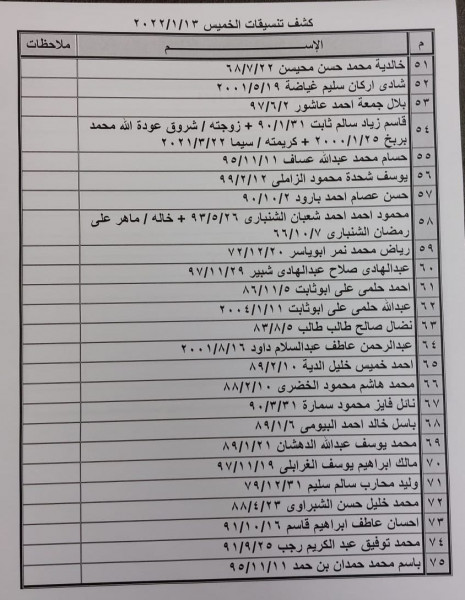 كشف تنسيقات الخميس ٢٠٢٢/١/١٣
م الإســـــم ملاحظات
٥١ خالدية محمد حسن محيسن ٦٨/٧/٢٢
٥٢ شادى اركان سليم غياضة ٢٠٠١/٥/١٩
٥٣ بلال جمعة احمد عاشور ٩٧/٦/٢
٥٤ قاسم زياد سالم ثابت ٩٠/١/٣١ + زوجته / شروق عودة الله محمد
بريخ ٢٠٠٠/١/٢٥ + كريمته / سيما ٢٠٢١/٣/٢٢
٥٥ حسام محمد عبدالله عساف ٩٥/١١/١١
٥٦ يوسف شحدة محمود الزاملى ٩٩/٢/١٢
٥٧ حسن عصام احمد بارود ٩٠/١٠/٢
٥٨ محمود احمد احمد شعبان الشنبارى ٩٣/٥/٢٦ + خاله / ماهر على
رمضان الشنبارى ٦٦/١٠/٧
٥٩ رياض محمد نمر ابوياسر ٧٢/١٢/٢٠
٦٠ عبدالهادى صلاح عبدالهادى شبير ٩٧/١١/٢٩
٦١ احمد حلمى على ابوثابت ٨٦/١١/٥
٦٢ عبدالله حلمى على ابوثابت ٢٠٠٤/١/١١
٦٣ نضال صالح طالب طالب ٨٣/٨/٥
٦٤ عبدالرحمن عاطف عبدالسلام داود ٢٠٠١/٨/١٦
٦٥ احمد خميس خليل الدية ٨٩/٢/١٠
٦٦ محمد هاشم محمود الخضرى ٨٨/٢/١٠
٦٧ نائل فايز محمود سمارة ٩٠/٣/٣١
٦٨ باسل خالد احمد البيومى ٨٩/١/٦
٦٩ محمد يوسف عبدالله الدهشان ٨٩/١/٢١
٧٠ مالك ابراهيم يوسف الغرابلى ٩٧/١١/١٩
٧١ وليد محارب سالم سليم ٧٩/١٢/٣١
٧٢ محمد خليل حسن الشبراوى ٨٨/٤/٢٣
٧٣ احسان عاطف ابراهيم قاسم ٩١/١٠/١٦
٧٤ محمد توفيق عبد الكريم رجب ٩١/٩/٢٥
٧٥ باسم محمد حمدان بن حمد ٩٥/١١/١١